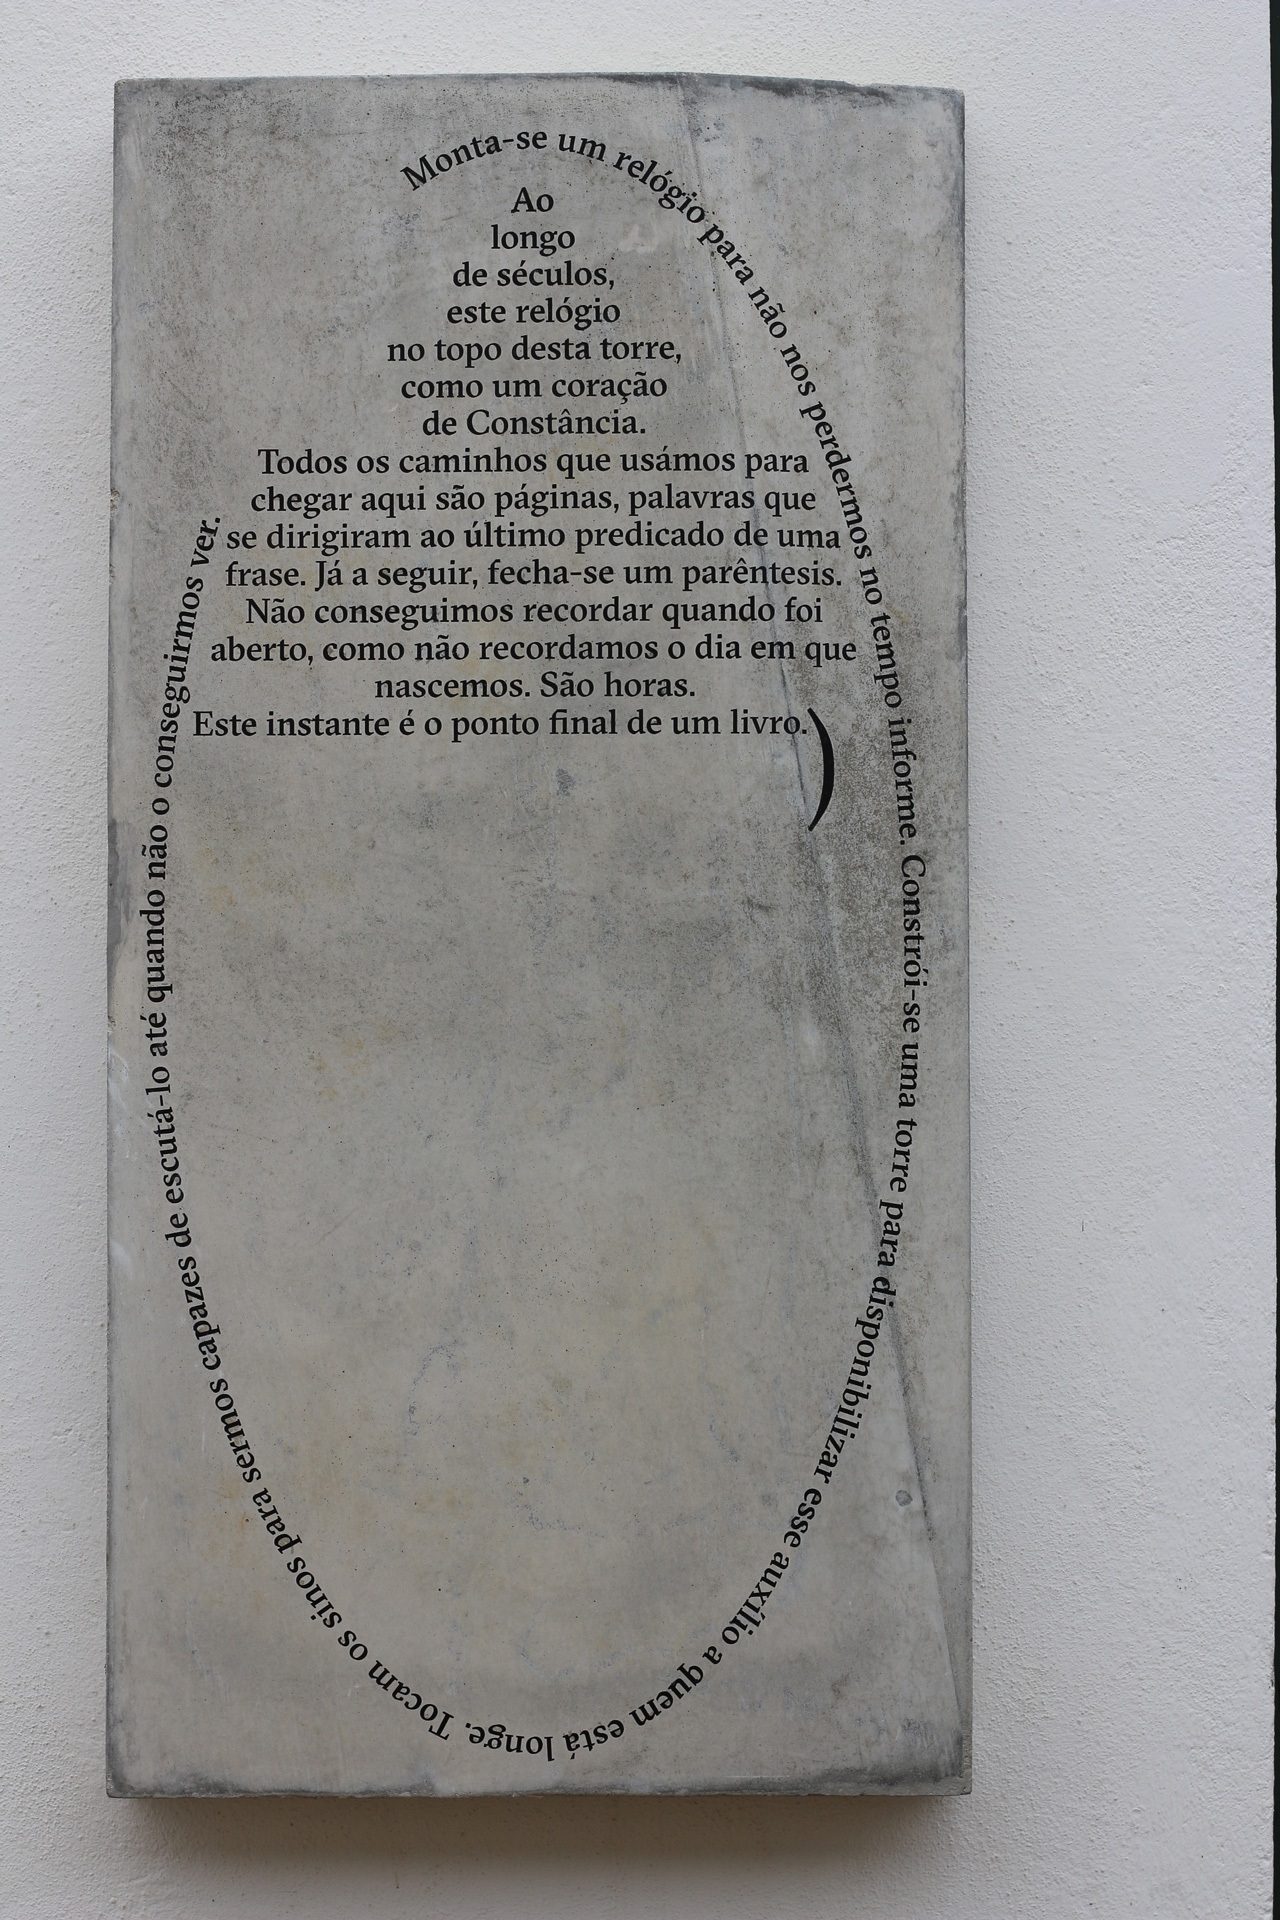 Monta-se um relógio para não nos perdermos no tempo informe. Constrói-se uma torre para disponibilizar esse auxílio a quem está longe. Tocam os sinos para sermos capazes de escutá-lo até quando não o conseguirmos ver.
Ao
longo
de séculos,
este relógio
no topo desta torre,
como um coração
de Constância.
Todos os caminhos que usámos para
chegar aqui são páginas, palavras que
se dirigiram ao último predicado de uma
frase. Já a seguir, fecha-se um parêntesis.
Não conseguimos recordar quando foi
aberto, como não recordamos o dia em que
nascemos. São horas.
Este instante é o ponto final de um livro.)